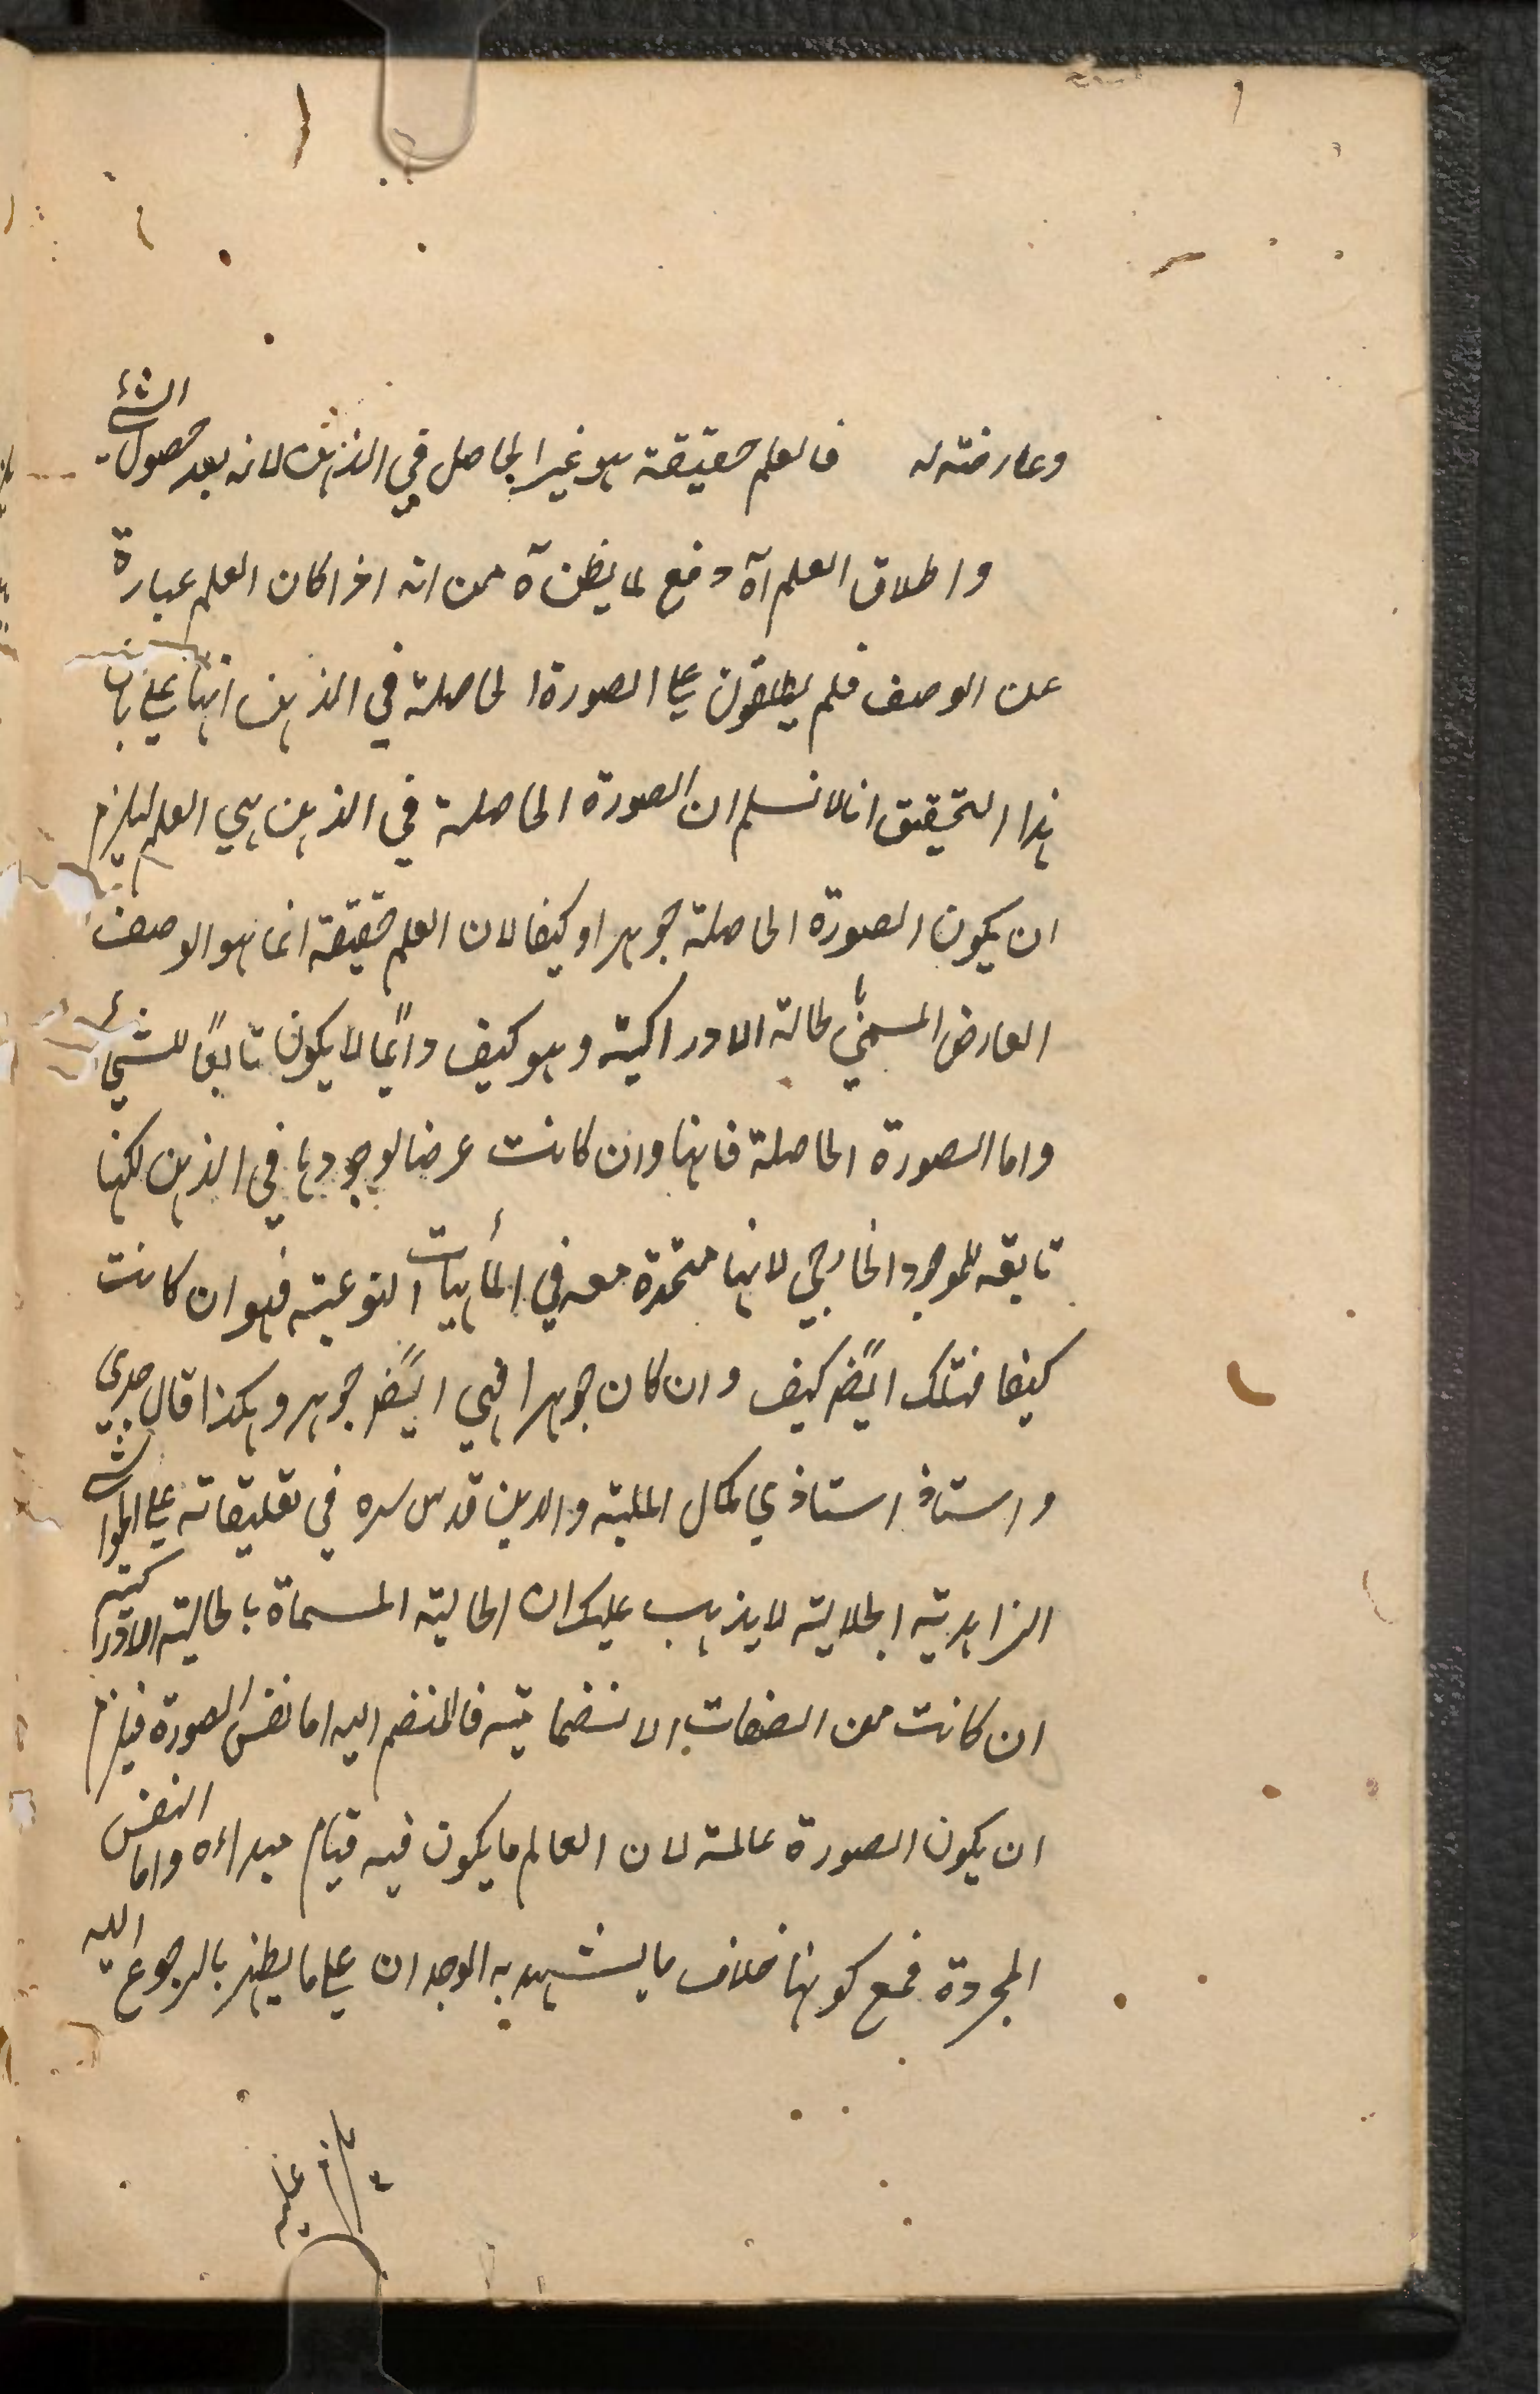 وعارضته له فالعلم حقيقة هو غير الحاصل في الذهن لانه بعد حصول الشئ
واطلاق العلم آه دفع لما يظن آه من انه اذا كان العلم عبارة
عن الوصف فلم يطلقون على الصورة الحاصلة في الذهن انها على بان
هذا التحقيق انا لا نسلم ان الصورة الحاصلة في الذهن هي العلم ليلزم
ان يكون الصورة الحاصلة جوهرا وكيفا لان العلم حقيقة انما هو الوصف
العارض المسمى بالحالة الادراكية وهو كيف دائما لا يكون تابعًا للشئ
واما الصورة الحاصلة فانها وان كانت عرضا لوجودها في الذهن لكنها
تابعة للموجود الخارجي لانها متحدة معه في الماهيات النوعية فهو ان كانت
كيفا فتلك ايضًا كيف وان كان جوهرا فهي ايضًا جوهر وهكذا قال جدي
واستاذ استاذي كمال الملة والدين قدس سره في تعليقاته على الحواشي
الزاهدية الجلالية لا يذهب عليك ان الحالية المسماة بالحالية الادراكية
ان كانت من الصفات الانضمامية فالمنضم اليه اما نفس الصورة فيلزم
ان يكون الصورة عالمة لان العالم ما يكون فيه قيام مبداءه واما النفس
المجردة فمع كونها خلاف ما يشهد به الوجدان على ما يظهر بالرجوع اليه